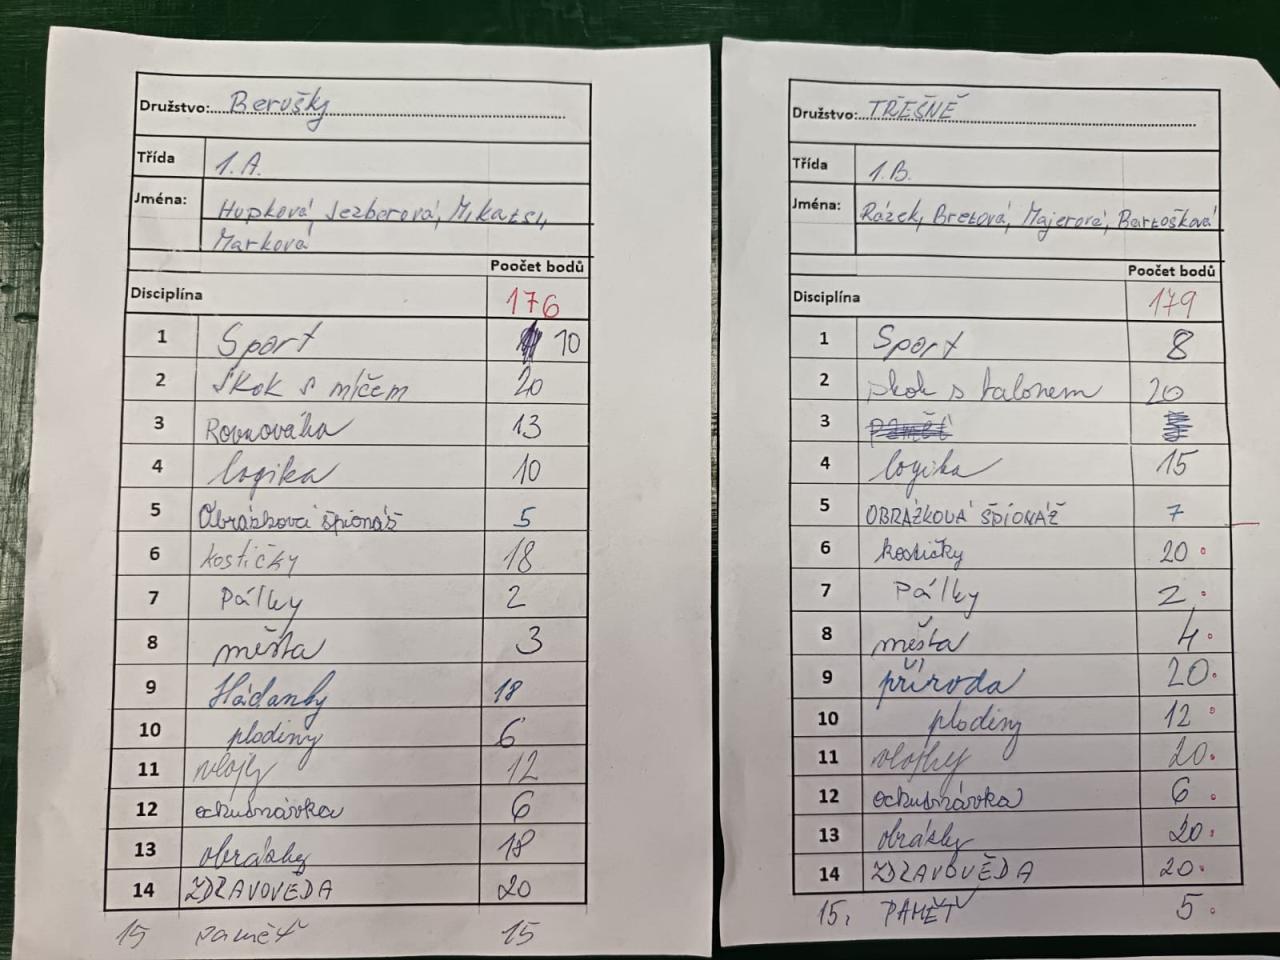 Družstvo:....Berušky
Třída 1.A.
Jména: Hupková, Jezberová, Mikatsi,
Marková
Poočet bodů
Disciplína 176
1 Sport 10
2 Skok s míčem 20
3 Rovnováha 13
4 logika 10
5 Obrázková špionáž 5
6 kostičky 18
7 Pálky 2
8 města 3
9 Hádanky 18
10 plodiny 6
11 vlajky 12
12 ochutnávka 6
13 obrázky 18
14 ZDRAVOVĚDA 20
15 paměť 15
Družstvo:..TŘEŠNĚ
Třída 1.B.
Jména: Rázek, Bretová, Majerová, Bartošková
Poočet bodů
Disciplína 179
1 Sport 8
2 skok s balonem 20
3 paměť
4 logika 15
5 OBRÁZKOVÁ ŠPIONÁŽ 7
6 kostičky 20
7 Pálky 2
8 města 4
9 příroda 20
10 plodiny 12
11 vlajky 20
12 ochutnávka 6
13 obrázky 20
14 ZDRAVOVĚDA 20
15. PAMĚŤ 5